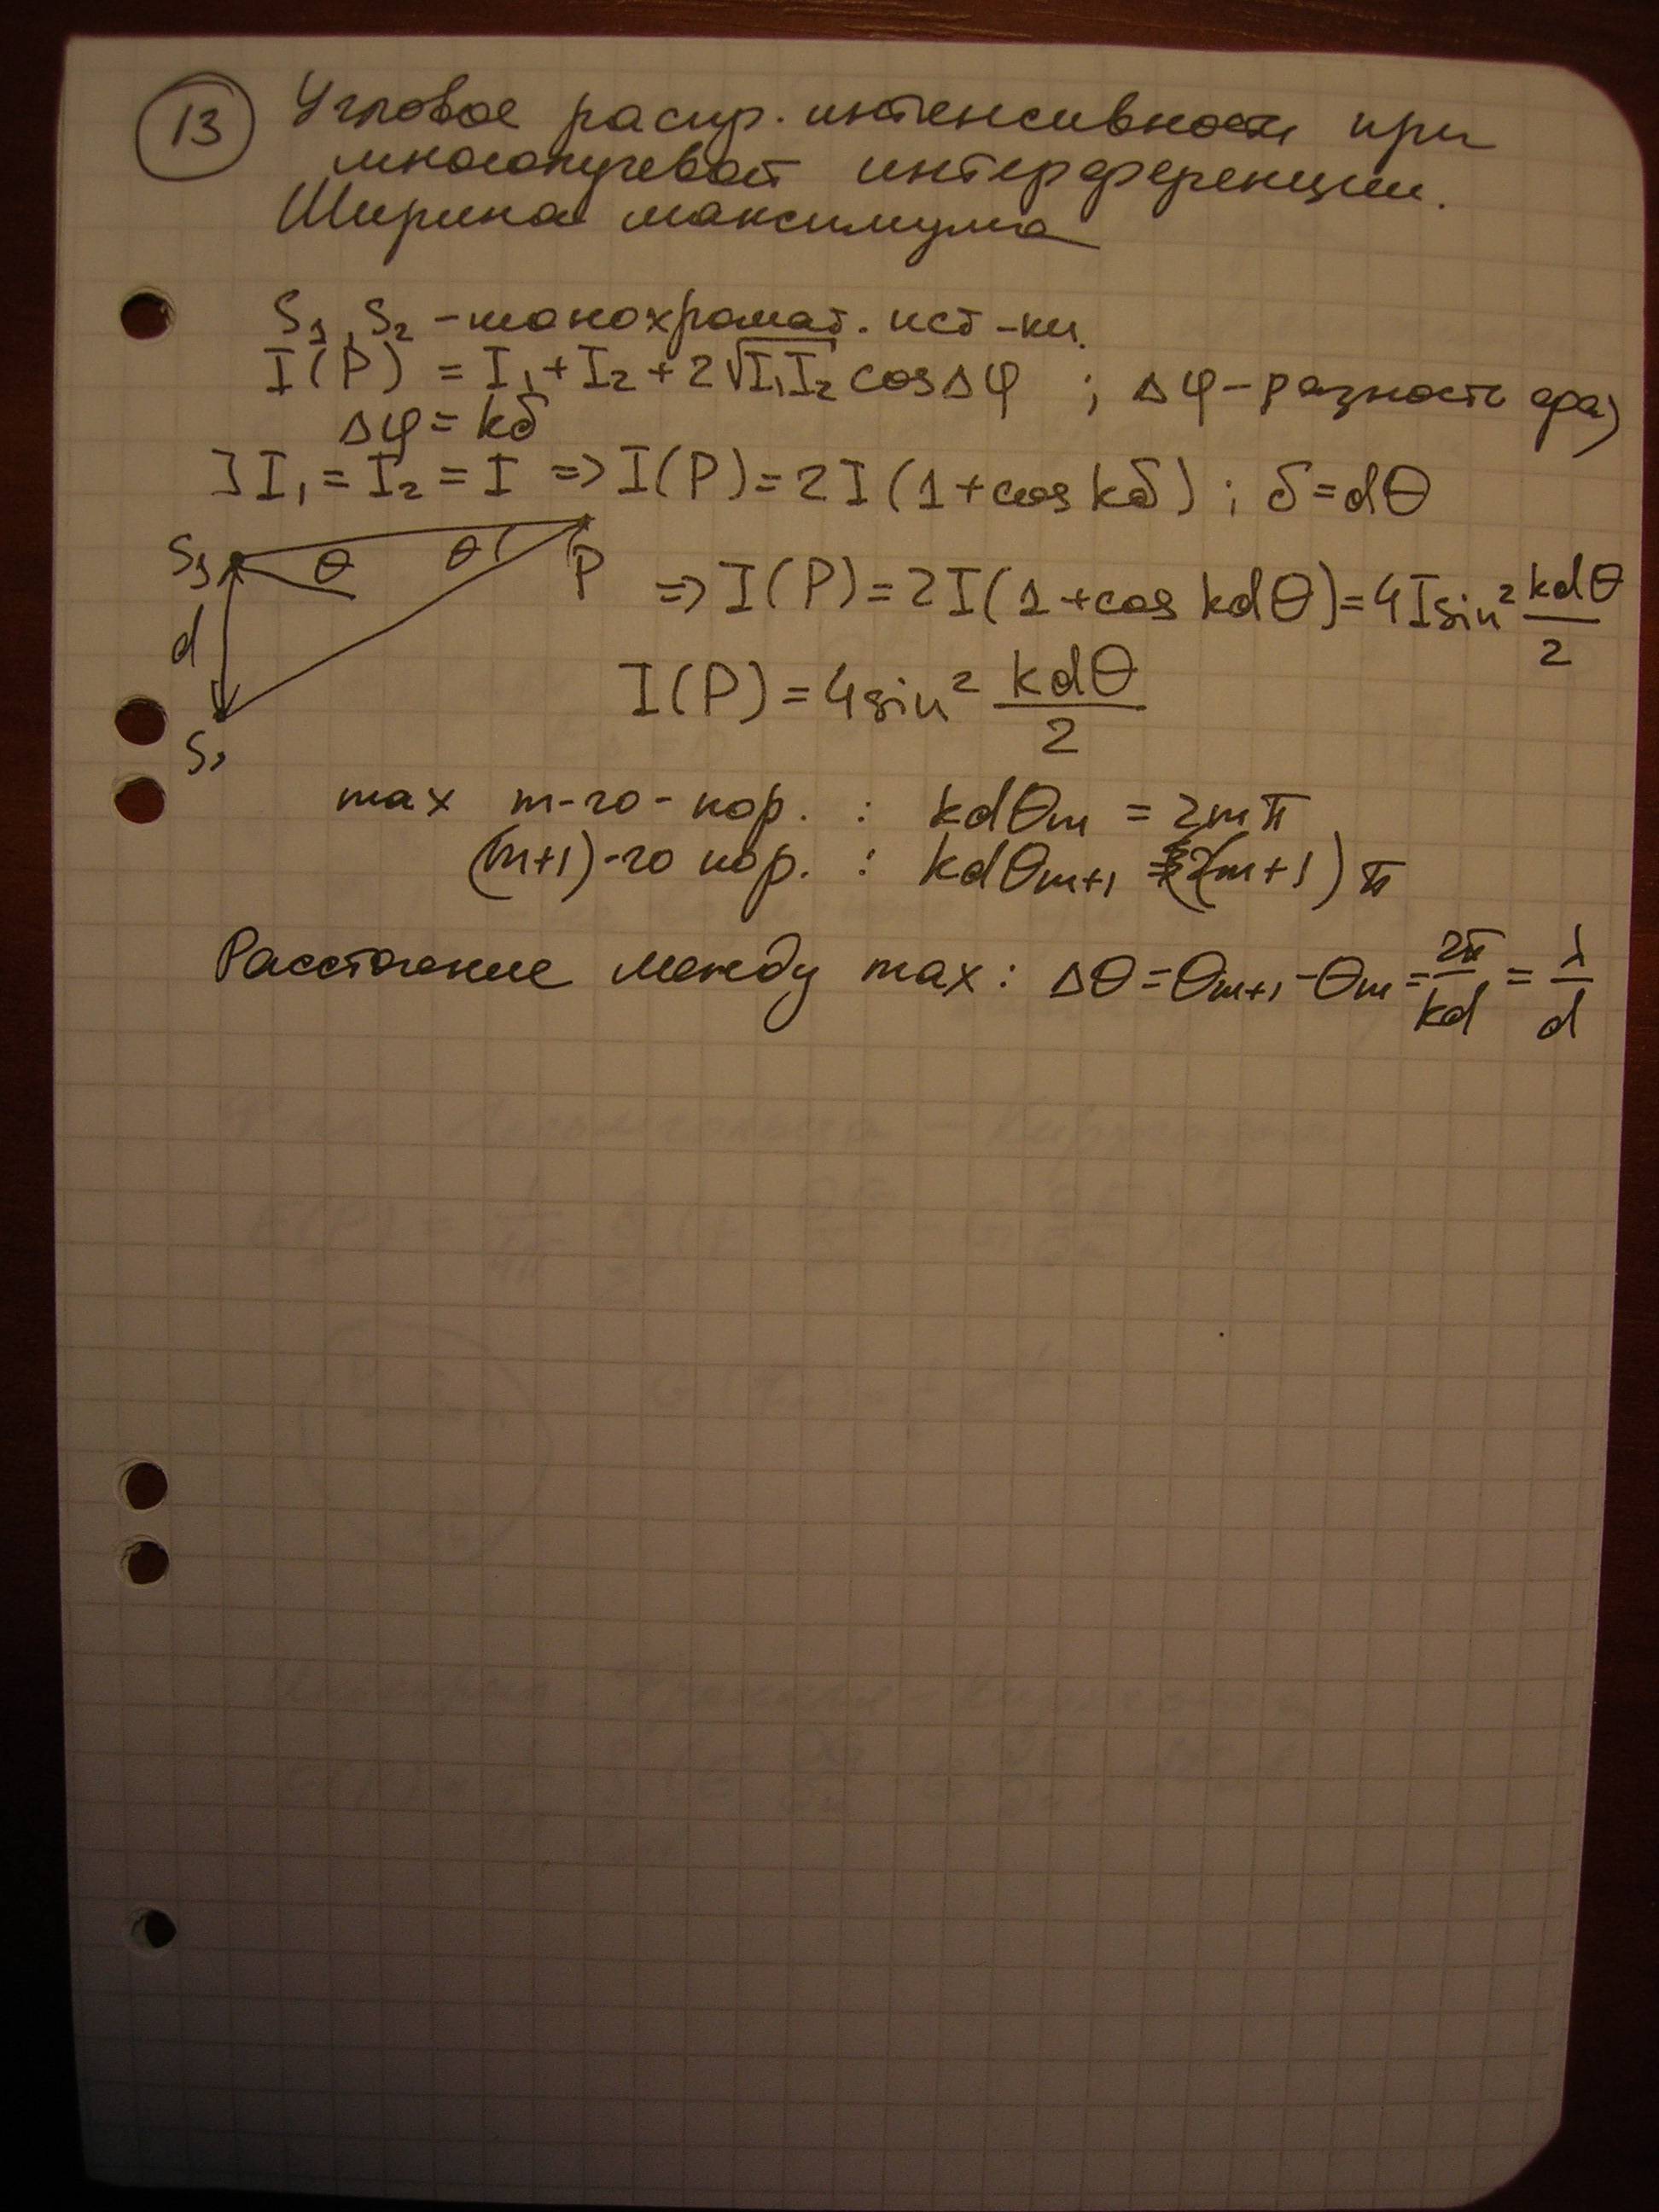 13 Угловое распр. интенсивности при
многолучевой интерференции.
Ширина максимума
S₁, S₂ - монохромат. ист-ки.
I(P) = I₁ + I₂ + 2√I₁I₂ cosΔφ ; Δφ - разность фаз
Δφ = kδ
] I₁ = I₂ = I => I(P) = 2I(1+cos kδ) ; δ = dθ
S₁ θ θ P
=> I(P) = 2I(1+cos kdθ) = 4I sin² kdθ/2
d
I(P) = 4 sin² kdθ/2
S₂
max m-го - пор. : kdθm = 2mπ
(m+1)-го пор. : kdθm+1 = 2(m+1)π
Расстояние между max: Δθ = θm+1 - θm = 2π/kd = λ/d